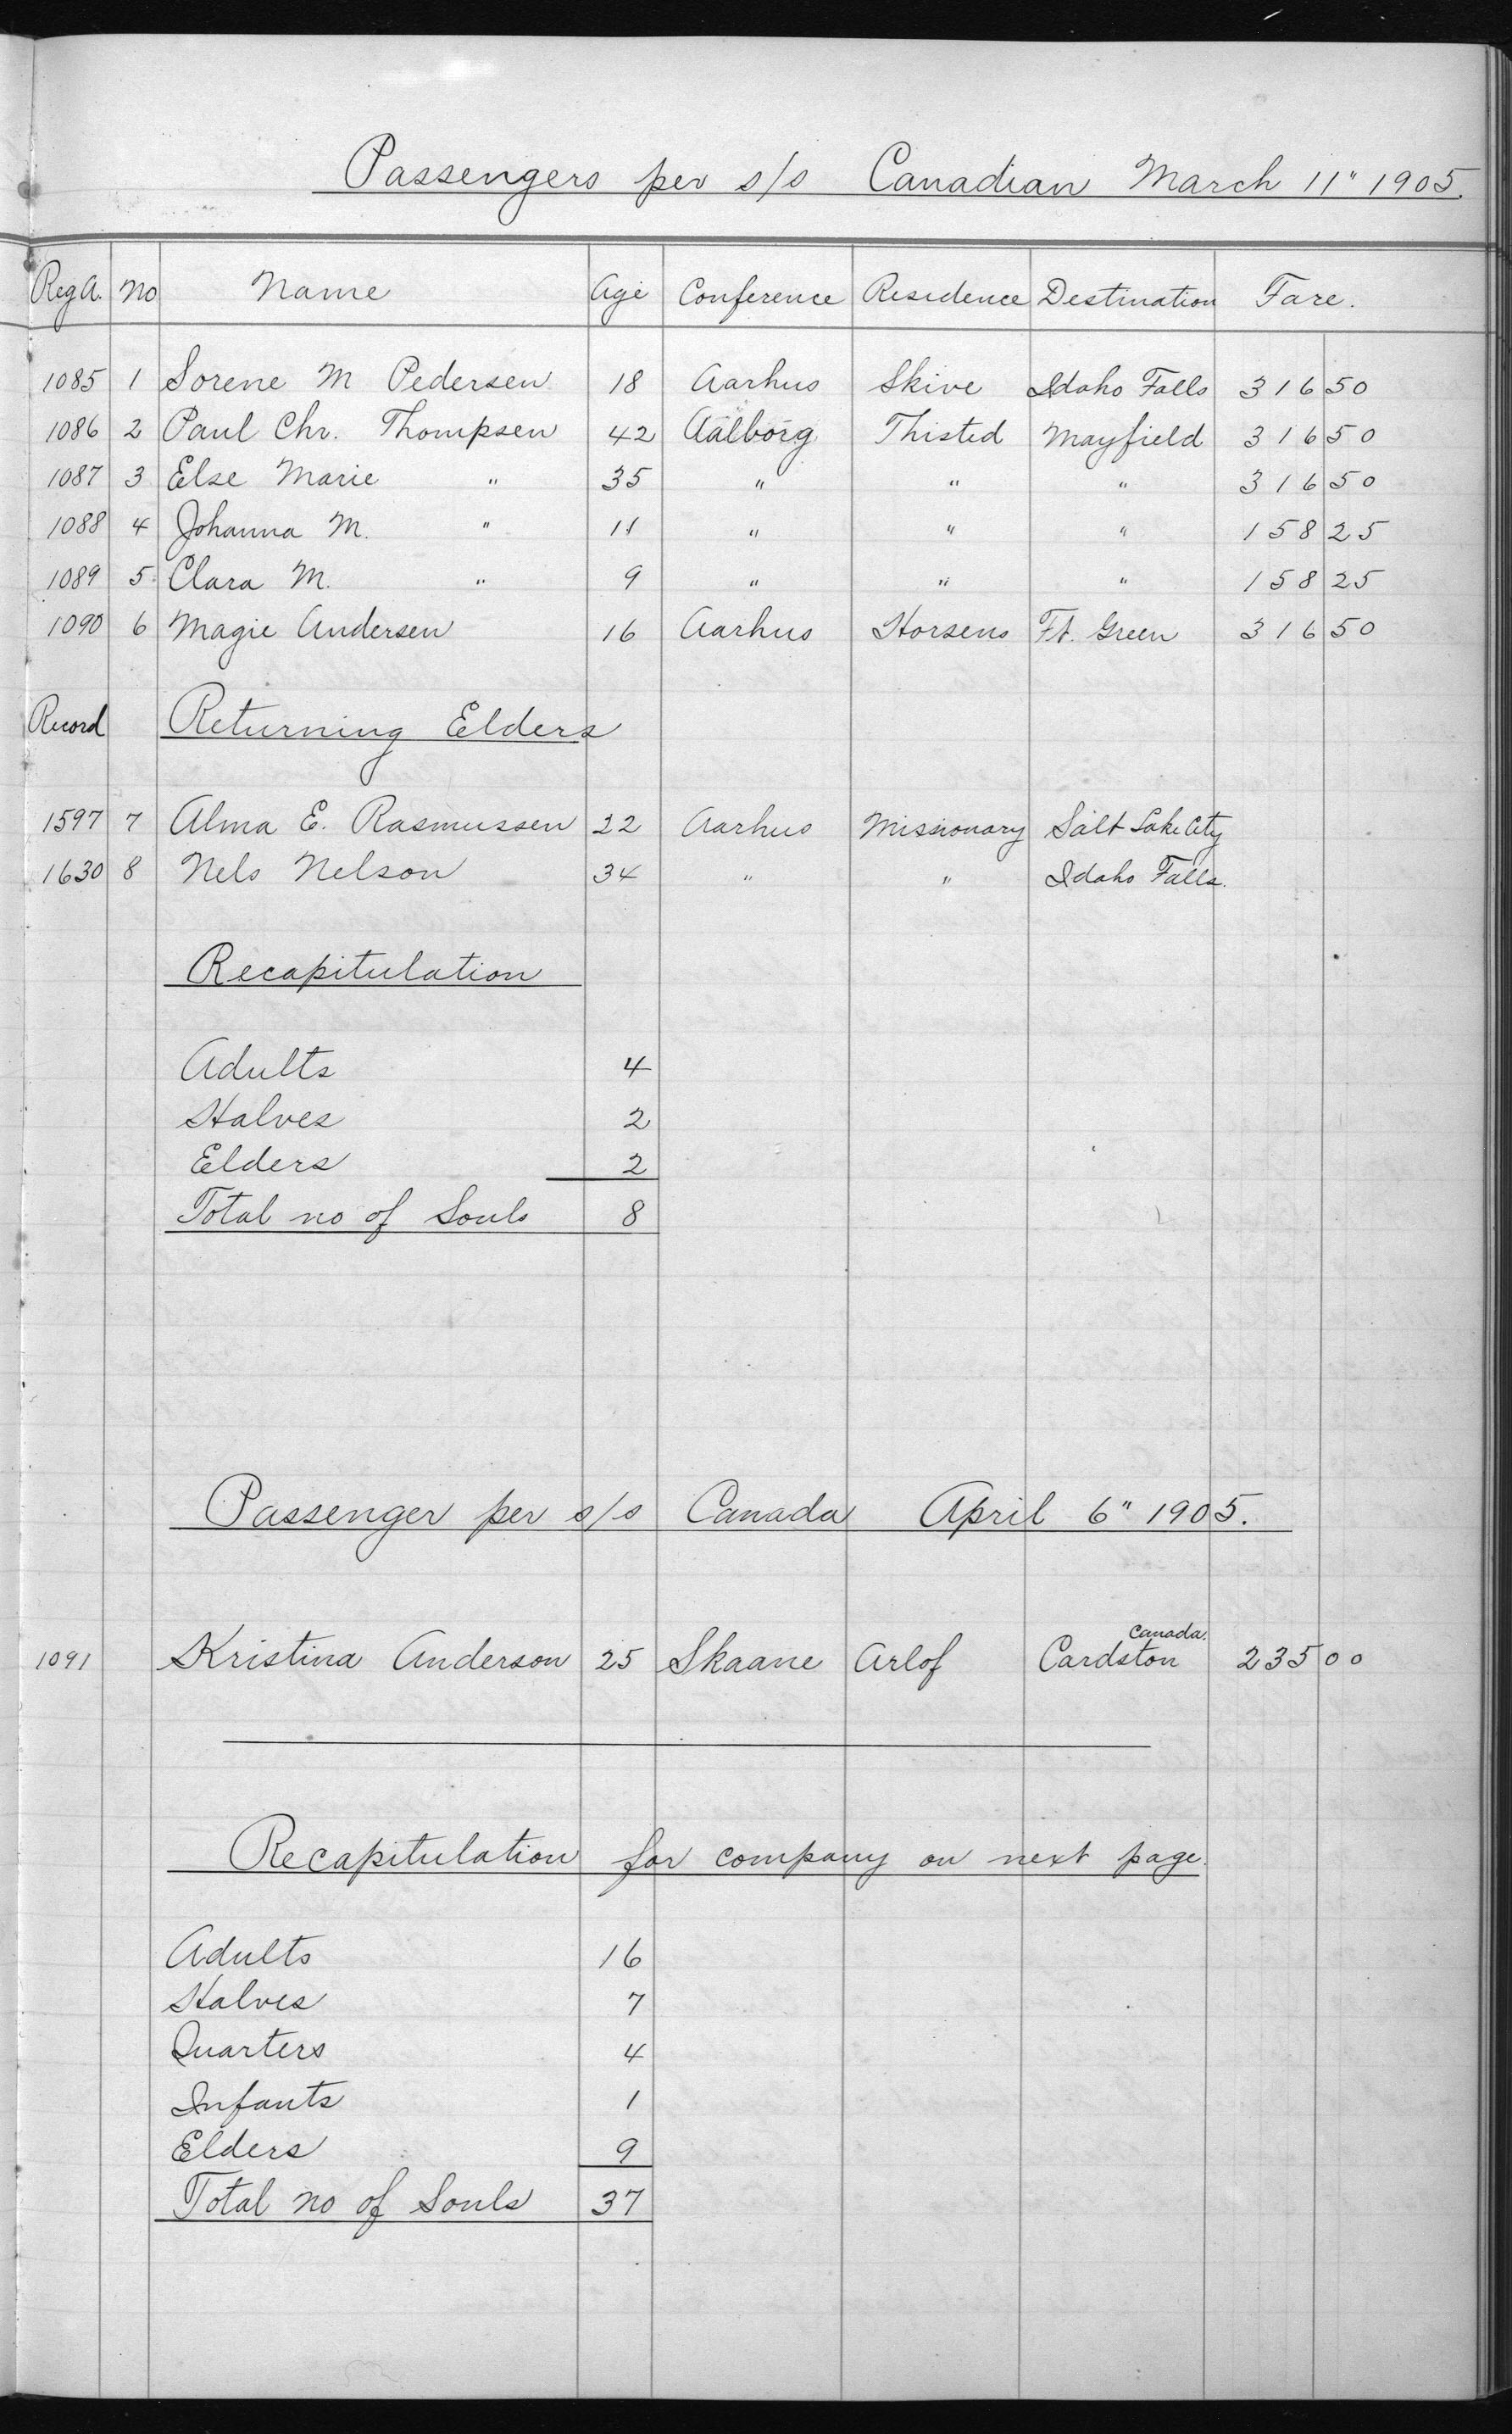 Passengers per s/s Canadian March 11" 1905.
Reg A. No Name Age Conference Residence Destination Fare.
1085 1 Sorene M Pedersen 18 Aarhus Skive Idaho Falls 316 50
1086 2 Paul Chr. Thompsen 42 Aalborg Thisted Mayfield 316 50
1087 3 Else Marie " 35 " " " 316 50
1088 4 Johanna M. " 11 " " " 158 25
1089 5 Clara M. " 9 " " " 158 25
1090 6 Magie Andersen 16 Aarhus Horsens Ft. Green 316 50
Record Returning Elders
1597 7 Alma E. Rasmussen 22 Aarhus Missionary Salt Lake City
1630 8 Nels Nelson 34 " " Idaho Falls.
Recapitulation
Adults 4
Halves 2
Elders 2
Total no of Souls 8
Passenger per s/s Canada April 6" 1905.
1091 Kristina Anderson 25 Skaane Arlof Cardston Canada. 235 00
Recapitulation for company on next page.
Adults 16
Halves 7
Quarters 4
Infants 1
Elders 9
Total no of Souls 37